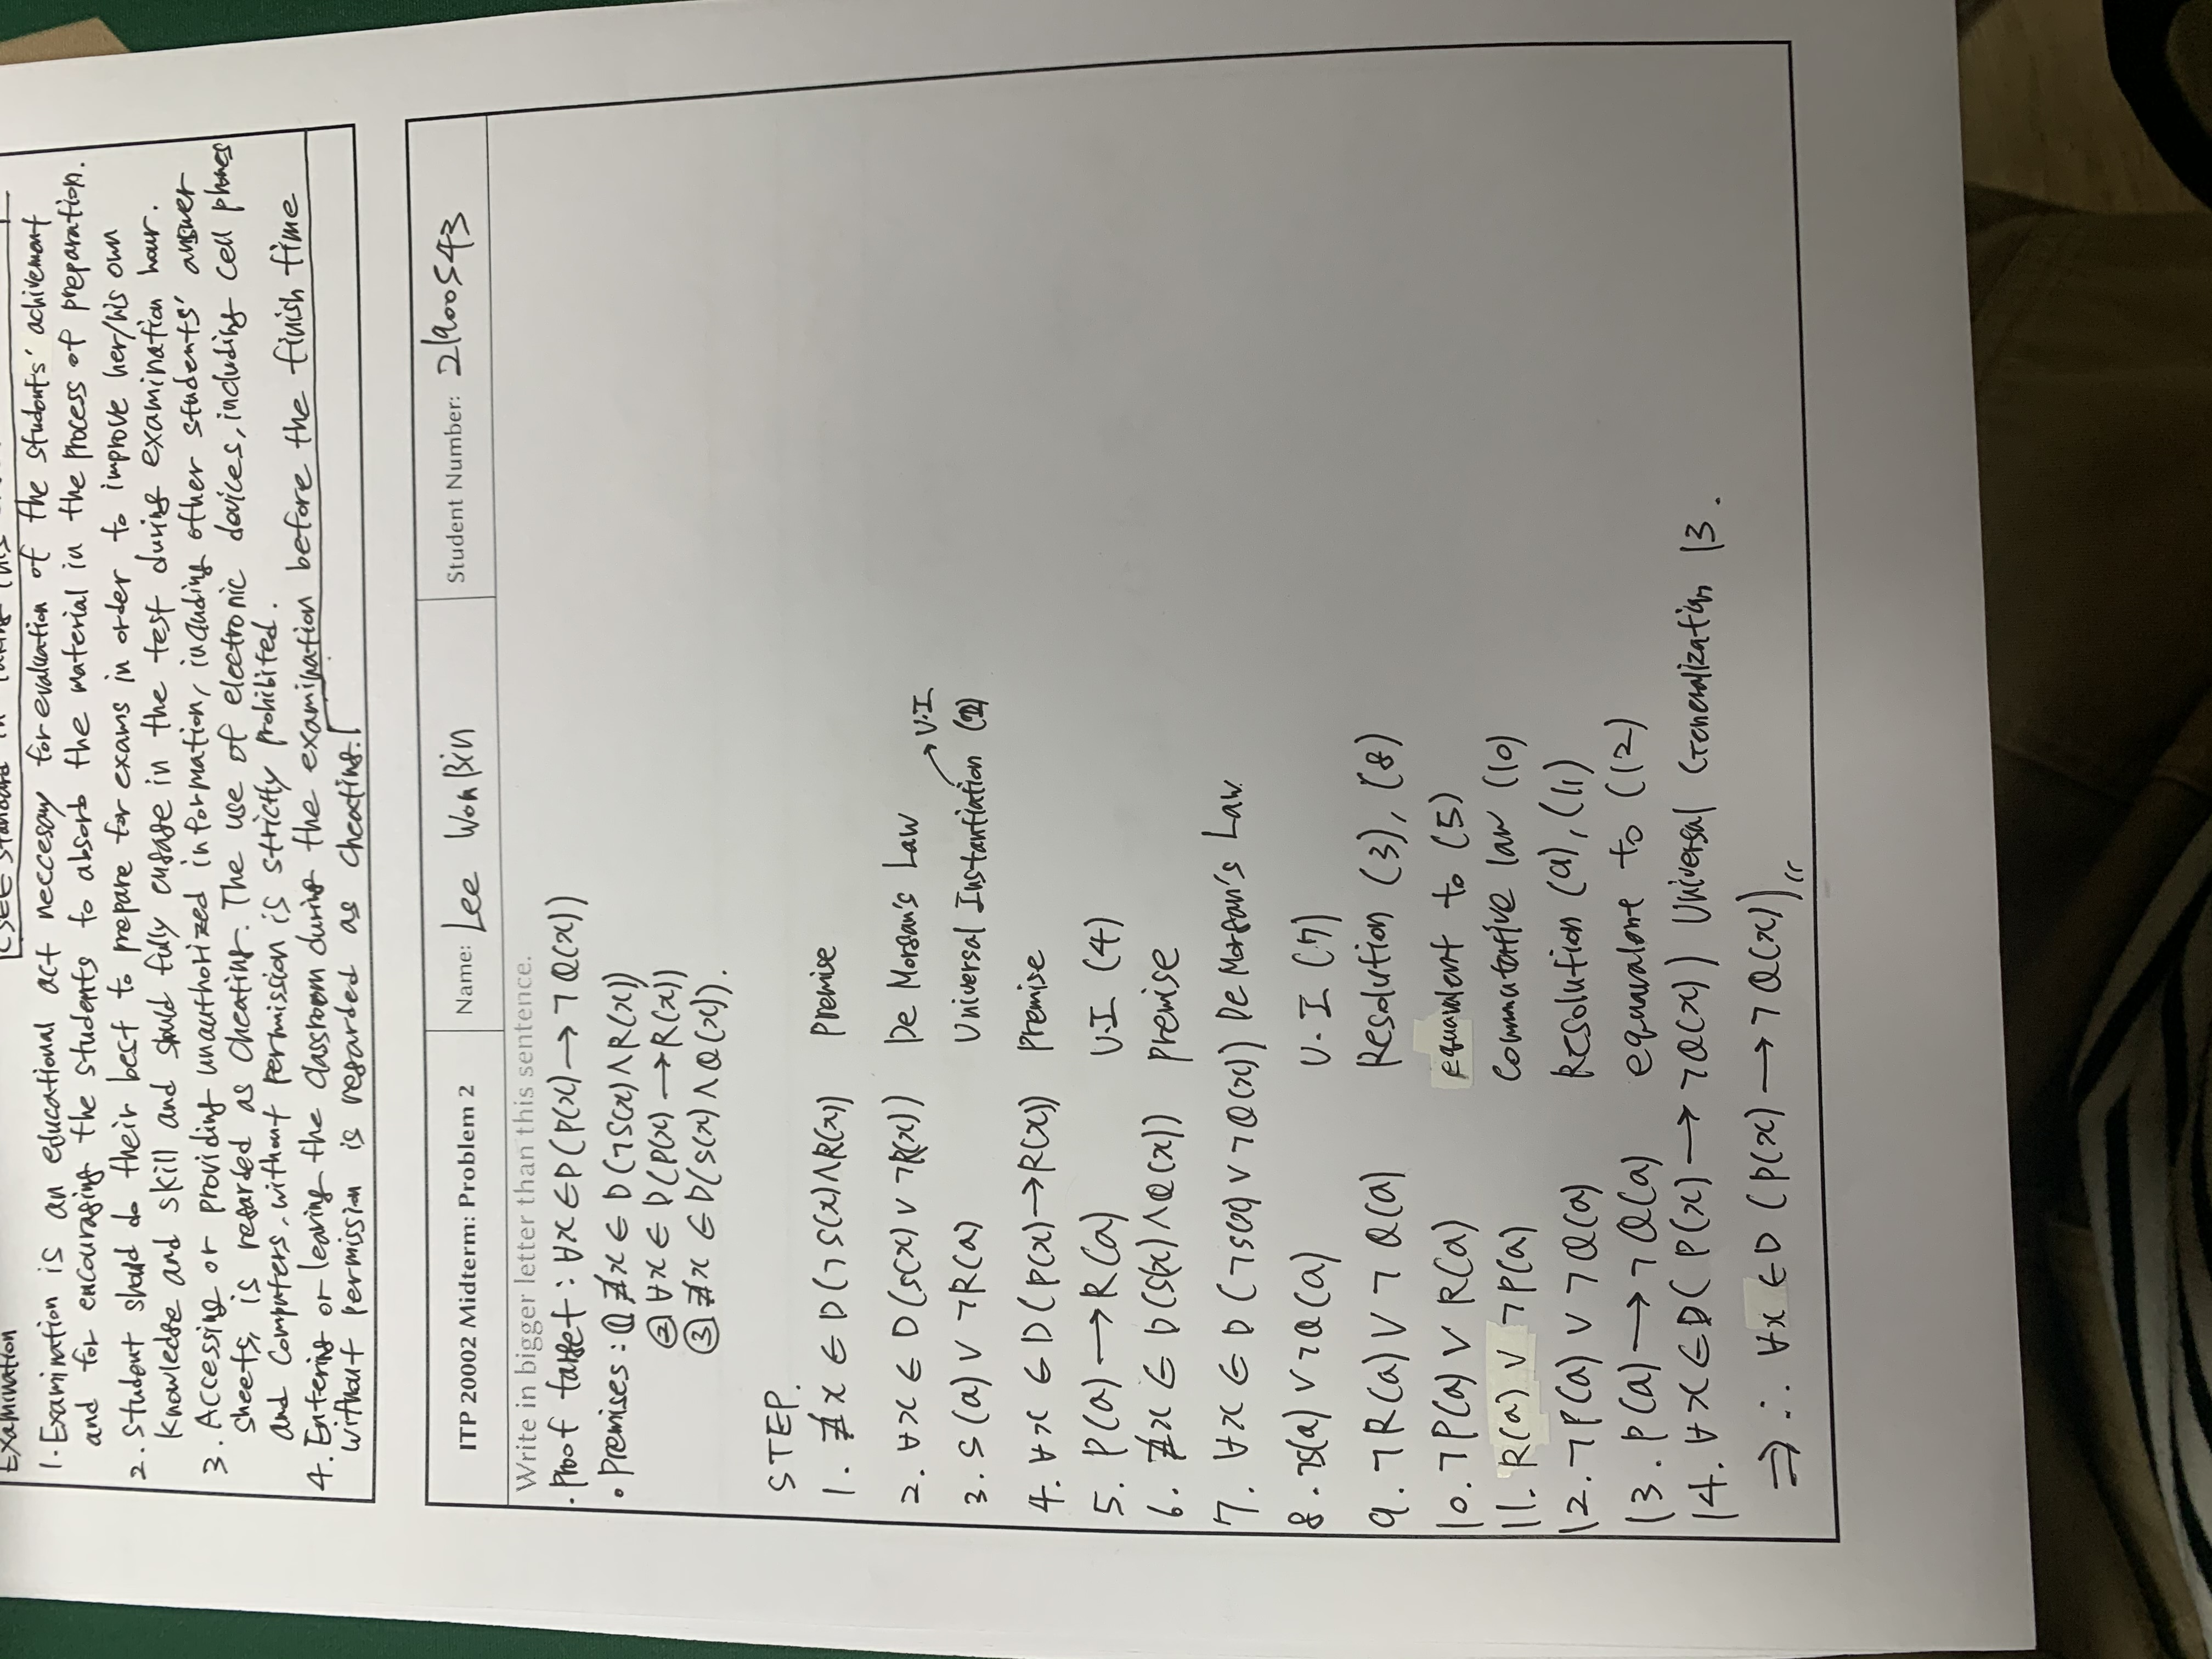 Examination
CSEE Standard in Taking this
1. Examination is an educational act neccesay for evaluation of the students' achivement
and for encouraging the students to absorb the material in the process of preparation.
2. Student should do their best to prepare for exams in order to improve her/his own
knowledge and skill and should fully engage in the test during examination hour.
3. Accessing or providing unauthorized information, including other students' answer
sheets, is regarded as cheating. The use of electronic devices, including cell phones
and computers, without permmission is strictly prohibited.
4. Entering or leaving the classroom during the examination before the finish time
without permission is regarded as cheating.
ITP 20002 Midterm: Problem 2
Name: Lee WonBin
Student Number: 21900543
Write in bigger letter than this sentence.
· Proof target : ∀x ∈ D (P(x) → ¬Q(x))
• Premises : ① ∄x ∈ D (¬S(x) ∧ R(x))
② ∀x ∈ D (P(x) → R(x))
③ ∄x ∈ D (S(x) ∧ Q(x)).
STEP.
1. ∄x ∈ D (¬S(x) ∧ R(x)) Premise
2. ∀x ∈ D (S(x) ∨ ¬R(x)) De Morgan's Law
→ U.I
3. S(a) ∨ ¬R(a) Universal Instantiation (2)
4. ∀x ∈ D (P(x) → R(x)) Premise
5. P(a) → R(a) U.I (4)
6. ∄x ∈ D (S(x) ∧ Q(x)) premise
7. ∀x ∈ D (¬S(x) ∨ ¬Q(x)) De Morgan's Law
8. ¬S(a) ∨ ¬Q(a) U.I (7)
9. ¬R(a) ∨ ¬Q(a) Resolution (3), (8)
10. ¬P(a) ∨ R(a) equavalent to (5)
11. R(a) ∨ ¬P(a) Commutative law (10)
12. ¬P(a) ∨ ¬Q(a) Resolution (9), (11)
13. P(a) → ¬Q(a) equavalent to (12)
14. ∀x ∈ D (P(x) → ¬Q(x)) Universal Generalization 13.
⇒ ∴ ∀x ∈ D (P(x) → ¬Q(x))